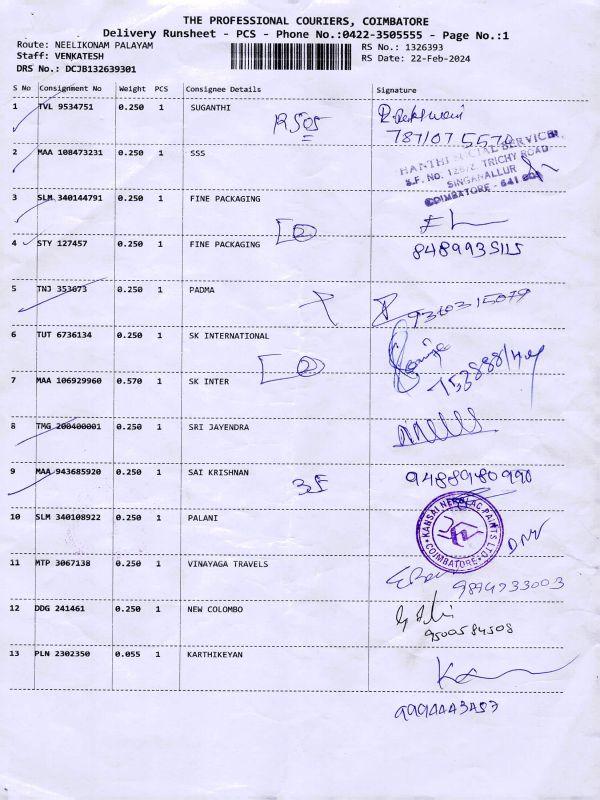 THE PROFESSIONAL COURIERS, COIMBATORE
Delivery Runsheet - PCS - Phone No.:0422-3505555 - Page No.:1
Route: NEELIKONAM PALAYAM
Staff: VENKATESH
DRS No.: DCJB132639301
RS No.: 1326393
RS Date: 22-Feb-2024
S No Consignment No Weight PCS Consignee Details Signature
1 TVL 9534751 0.250 1 SUGANTHI
2 MAA 108473231 0.250 1 SSS
SOCIAL SERVICE
TRICHY ROAD
SINGANALLUR
COIMBATORE - 641
3 SLM 340144791 0.250 1 FINE PACKAGING
2
4 STY 127457 0.250 1 FINE PACKAGING
5 TNJ 353673 0.250 1 PADMA
9360315079
6 TUT 6736134 0.250 1 SK INTERNATIONAL
2
7 MAA 106929960 0.570 1 SK INTER
8 TMG 200400001 0.250 1 SRI JAYENDRA
9 MAA 943685920 0.250 1 SAI KRISHNAN 9488980990
10 SLM 340108922 0.250 1 PALANI
KANSAI NEROLAC PAINTS LTD
COIMBATORE
11 MTP 3067138 0.250 1 VINAYAGA TRAVELS
9894733003
12 DDG 241461 0.250 1 NEW COLOMBO
9500584508
13 PLN 2302350 0.055 1 KARTHIKEYAN